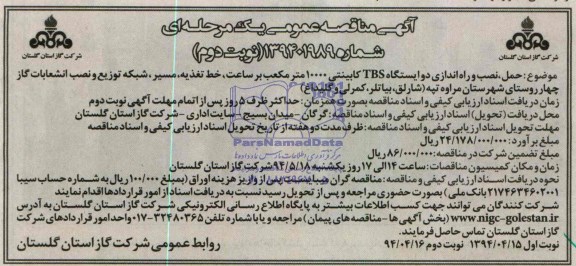 آگهی مناقصه عمومی یک مرحله ای
شماره ۱۳۹۴۰۱۹۸۹ (نوبت دوم)
شرکت گاز استان گلستان
شرکت گاز استان گلستان
موضوع: حمل، نصب و راه اندازی دو ایستگاه TBS کابینتی ۱۰۰۰۰ متر مکعب بر ساعت، خط تغذیه، مسیر، شبکه توزیع و نصب انشعابات گاز
چهار روستای شهرستان مراوه تپه (شارلق، بیاتلر، کمرلی و گلیداغ)
زمان دریافت اسناد ارزیابی کیفی و اسناد مناقصه بصورت همزمان: حداکثر ظرف ۵ روز پس از اتمام مهلت آگهی نوبت دوم
محل دریافت (تحویل) اسناد ارزیابی کیفی و اسناد مناقصه: گرگان - میدان بسیج - سایت اداری - شرکت گاز استان گلستان
مهلت تحویل اسناد ارزیابی کیفی و اسناد مناقصه: ظرف مدت دو هفته از تاریخ تحویل اسناد ارزیابی کیفی و اسناد مناقصه
مبلغ برآورد: ۲۴/۱۷۸/۰۰۰/۰۰۰ ریال
مبلغ تضمین شرکت در مناقصه: ۸۶/۰۰۰/۰۰۰ ریال
زمان و مکان کمیسیون مناقصات: ساعت ۱۴ الی ۱۷ روز یکشنبه ۹۴/۵/۱۸ شرکت گاز استان گلستان
نحوه دریافت اسناد ارزیابی کیفی و مناقصه: مناقصه گران میبایست پس از واریز هزینه اوراق (بمبلغ ۱۰۰/۰۰۰ ریال به شماره حساب سیبا
۲۱۷۴۶۳۴۶۰۲۰۰۱ بانک ملی) بصورت حضوری مراجعه و پس از تحویل رسید نسبت به دریافت اسناد از امور قراردادها اقدام نمایند
شرکت کنندگان می توانند جهت کسب اطلاعات بیشتر به پایگاه اطلاع رسانی الکترونیکی شرکت گاز استان گلستان به آدرس
www.nigc-golestan.ir (بخش آگهی ها - مناقصه های پیمان) مراجعه و یا با شماره تلفن ۳۲۴۸۰۳۶۵-۰۱۷ واحد امور قراردادهای شرکت
گاز استان گلستان تماس حاصل فرمایند.
نوبت اول ۱۳۹۴/۰۴/۱۵ نوبت دوم ۹۴/۰۴/۱۶
روابط عمومی شرکت گاز استان گلستان
ParsNamadData